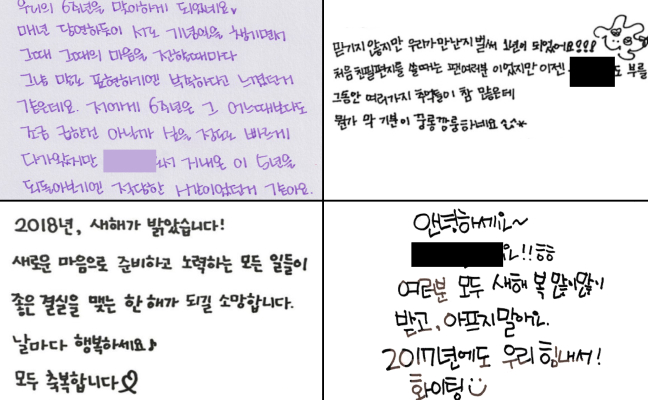 우리의 6주년을 맞이하게 되었네요♥
매년 당연하듯이 서로 기념일을 챙기면서
그때 그때의 마음을 전할때마다
그냥 말로 표현하기엔 벅차다고 느꼈던거
같은데요. 저에게 6주년은 그 어느때보다도
조금 급하진 아닌가 싶을 정도로 빠르게
다가왔지만 와서 거내온 이 6년을
되돌아보기엔 적당한 시간이었던거 같아요.
믿기지 않지만 우리가 만난지 벌써 1년이 되었어요???
처음 친필편지를 쓸때는 팬여러분 이었지만 이젠! 도 부를
그동안 여러가지 추억들이 참 많은데
뭔가 막 기분이 꿍룽깡룽하네요
2018년, 새해가 밝았습니다!
새로운 마음으로 준비하고 노력하는 모든 일들이
좋은 결실을 맺는 한 해가 되길 소망합니다.
날마다 행복하세요♪
모두 축복합니다
안녕하세요~
요!!ㅎㅎ
여러분 모두 새해 복 많이많이
받고, 아프지말아요.
2017년에도 우리 힘내서!
화이팅